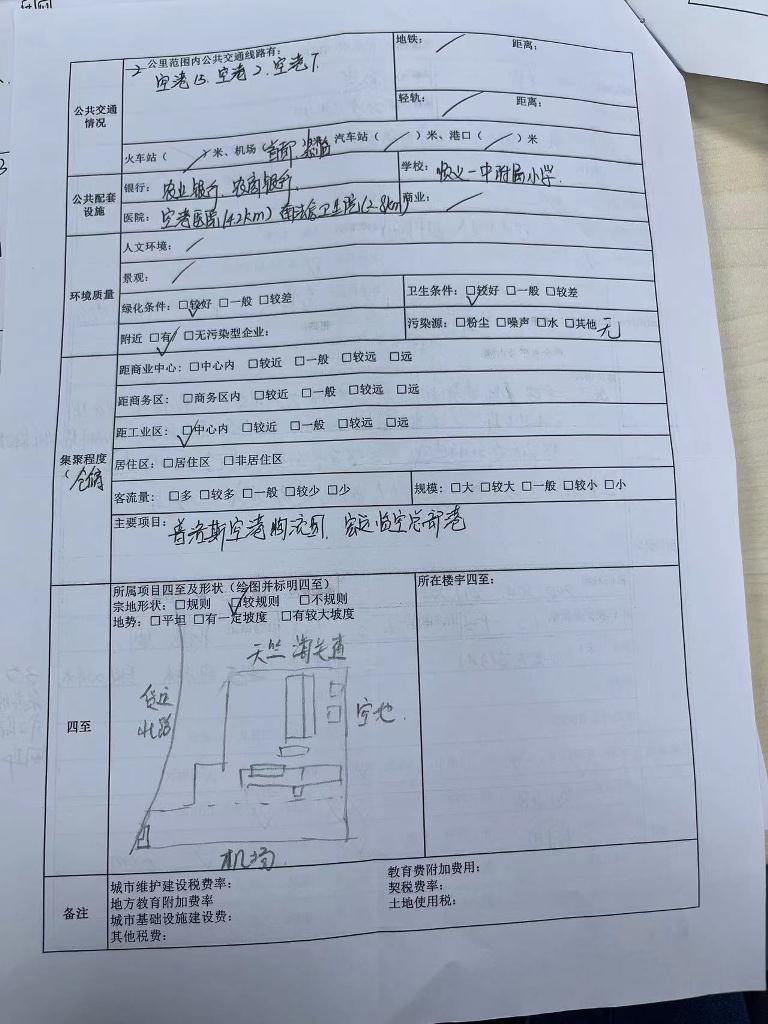 2公里范围内公共交通线路有:
空港13. 空港2. 空港1.
地铁: / 距离:
公共交通情况
轻轨: / 距离:
火车站( / )米、机场(首都 ) 汽车站( / )米、港口( / )米
公共配套设施
银行: 农业银行、农商银行.
学校: 附属小学.
医院: 空港医院(4.2km) 卫生院(2.8km)
商业: /
环境质量
人文环境: /
景观: /
绿化条件: ☑较好 □一般 □较差
卫生条件: ☑较好 □一般 □较差
附近 ☑有 □无污染型企业:
污染源: □粉尘 □噪声 □水 □其他 无
集聚程度
(仓储
距商业中心: □中心内 □较近 □一般 □较远 □远
距商务区: □商务区内 □较近 □一般 □较远 □远
距工业区: ☑中心内 □较近 □一般 □较远 □远
居住区: □居住区 □非居住区
客流量: □多 □较多 □一般 □较少 □少
规模: □大 □较大 □一般 □较小 □小
主要项目: 普洛斯空港物流园、宏远临空总部港
四至
所属项目四至及形状(绘图并标明四至)
所在楼宇四至:
宗地形状: □规则 ☑较规则 □不规则
地势: □平坦 □有一定坡度 □有较大坡度
天竺海关道
货运北路
空地.
机场.
备注
城市维护建设税费率:
教育费附加费用:
地方教育附加费率
契税费率:
城市基础设施建设费:
土地使用税:
其他税费: